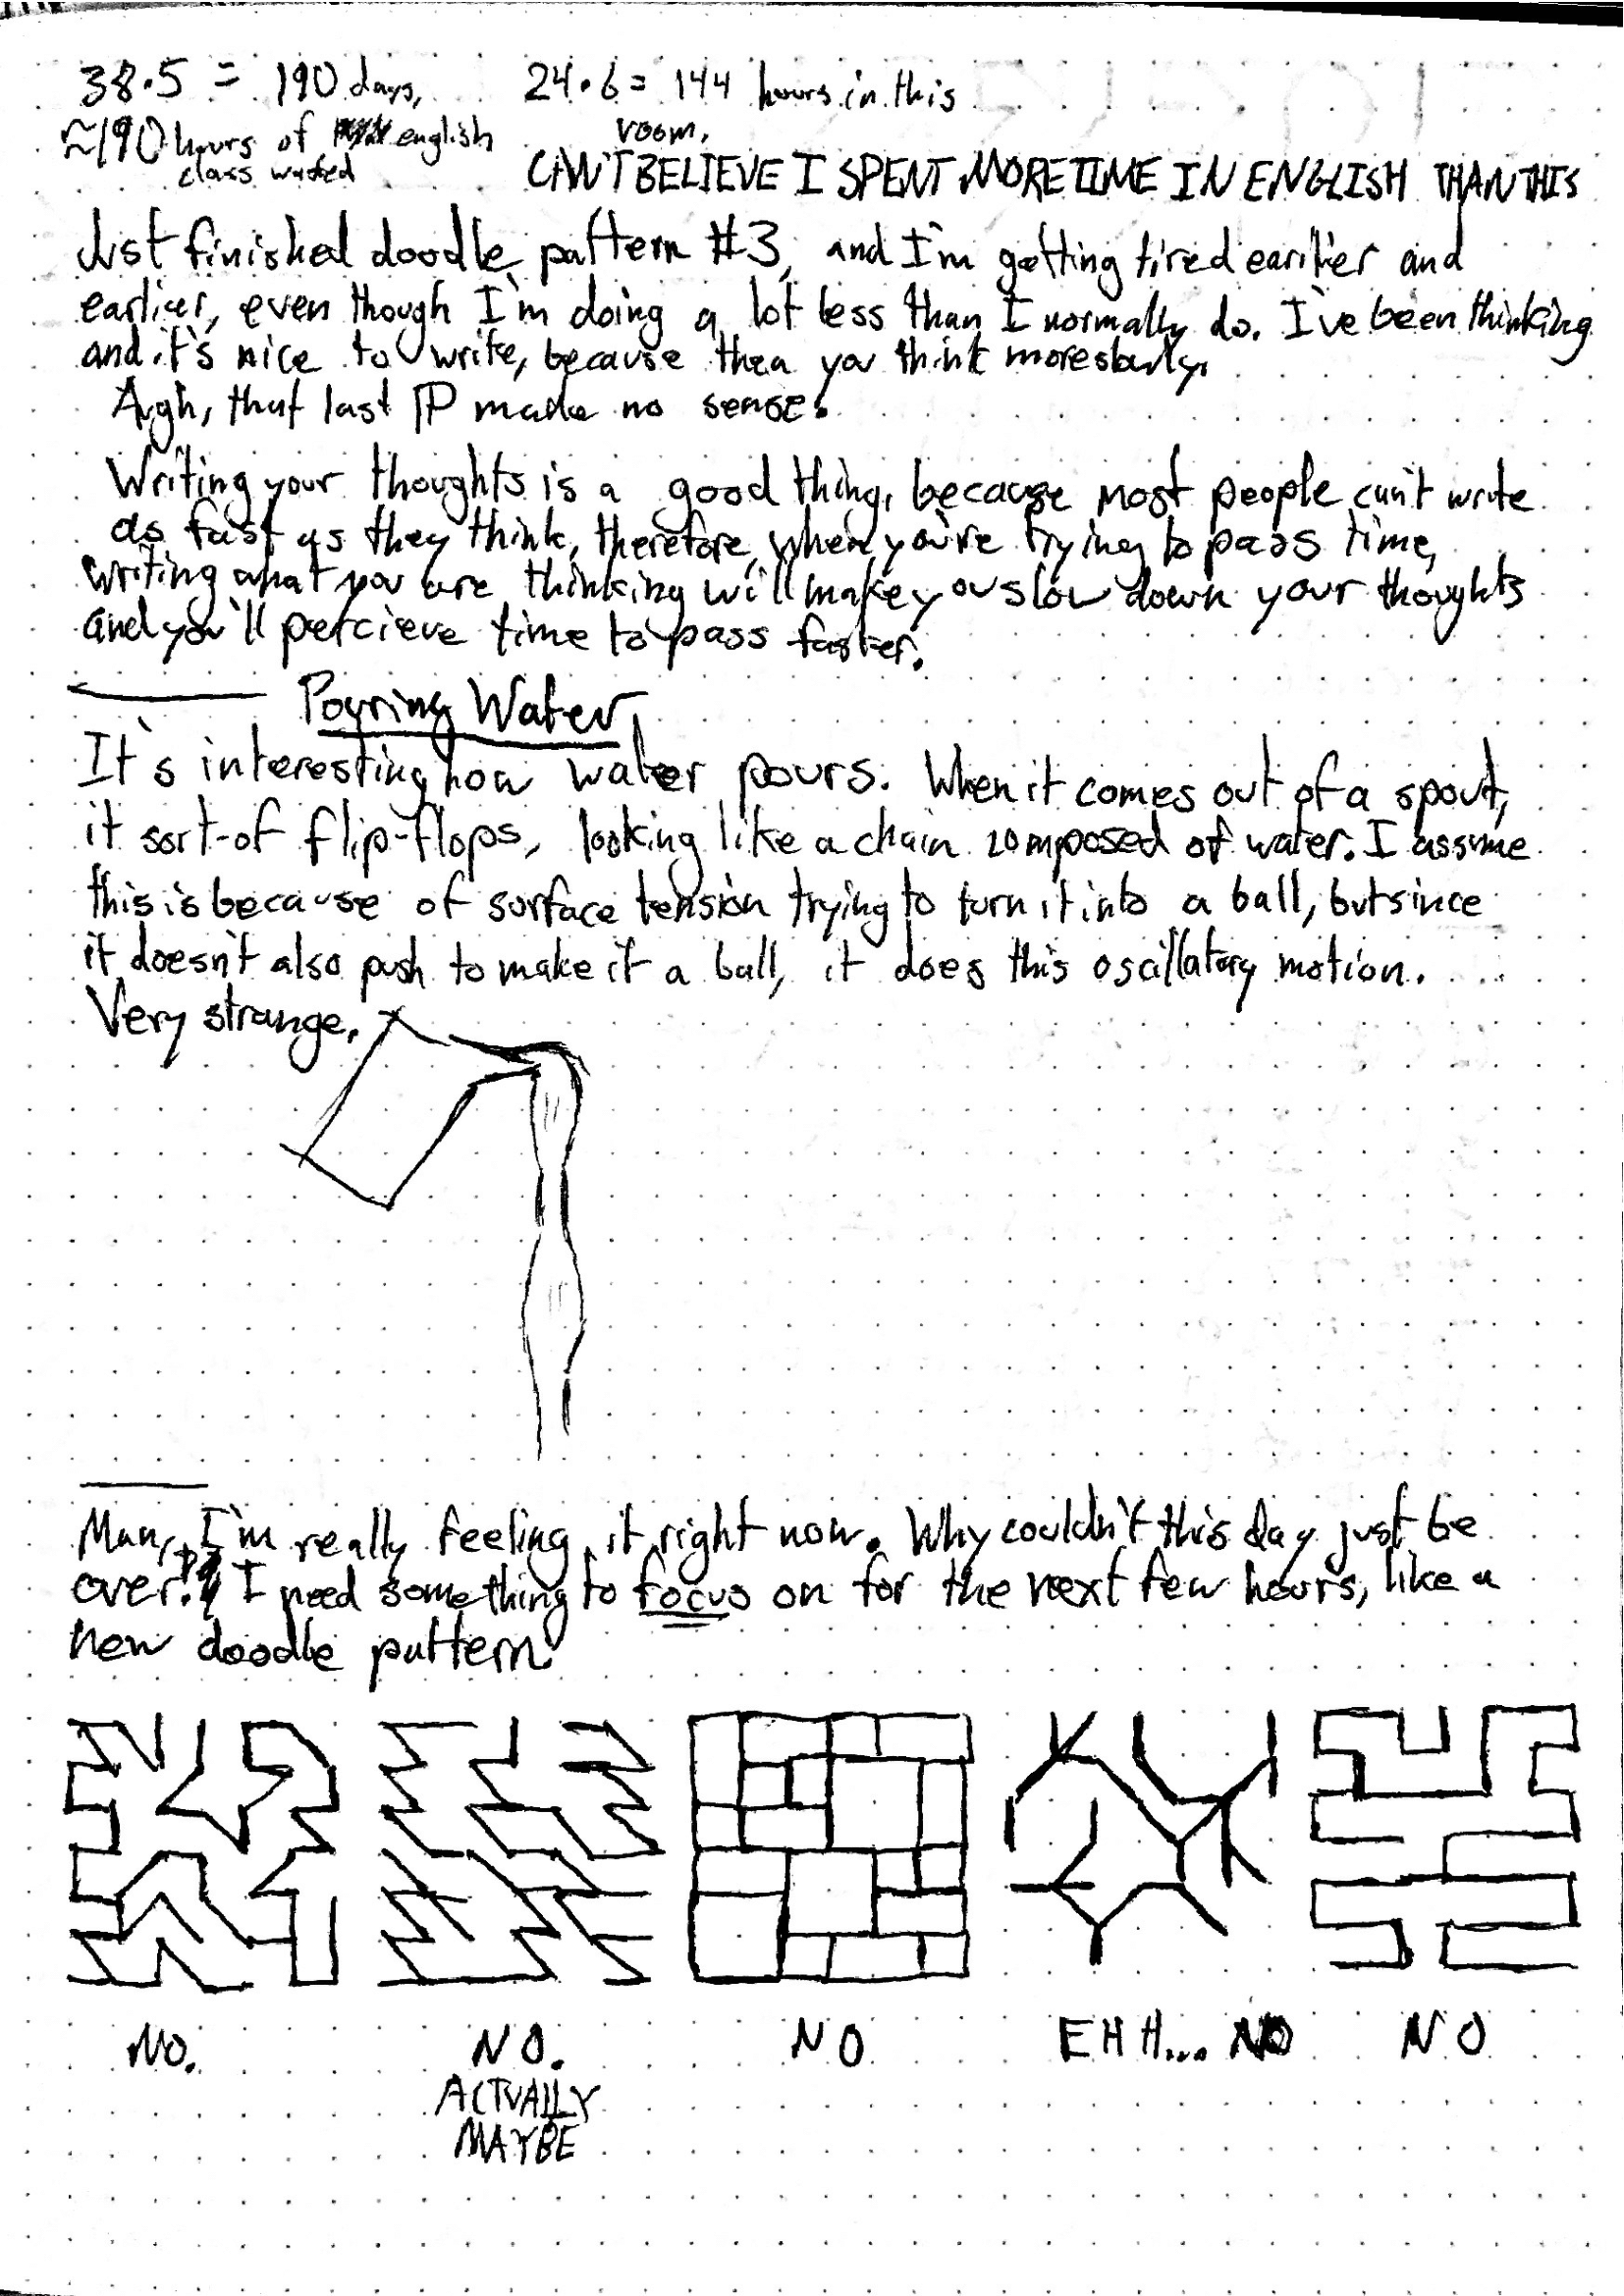 38·5 = 190 days,
≈190 hours of english
class wasted
24·6= 144 hours in this
room.
CAN'T BELIEVE I SPENT MORE TIME IN ENGLISH THAN THIS
Just finished doodle pattern #3, and I'm getting tired earilier and
earlier, even though I'm doing a lot less than I normally do. I've been thinking
and it's nice to write, because then you think more
Argh, that last IP made no sense.
Writing your thoughts is a good thing, because most people can't write
as fast as they think, therefore, when you're trying to pass time,
writing what you are thinking will make you slow down your thoughts
and you'll percieve time to pass faster.
Pouring Water
It's interesting how water pours. When it comes out of a spout,
it sort-of flip-flops, looking like a chain composed of water. I assume
this is because of surface tension trying to turn it into a ball, but since
it doesn't also push to make it a ball, it does this oscillatory motion.
Very strange.
Man, I'm really feeling it right now. Why couldn't this day just be
over. I need something to focus on for the next few hours, like a
new doodle pattern.
NO.
NO.
ACTUALLY
MAYBE
NO
EHH... NO
NO